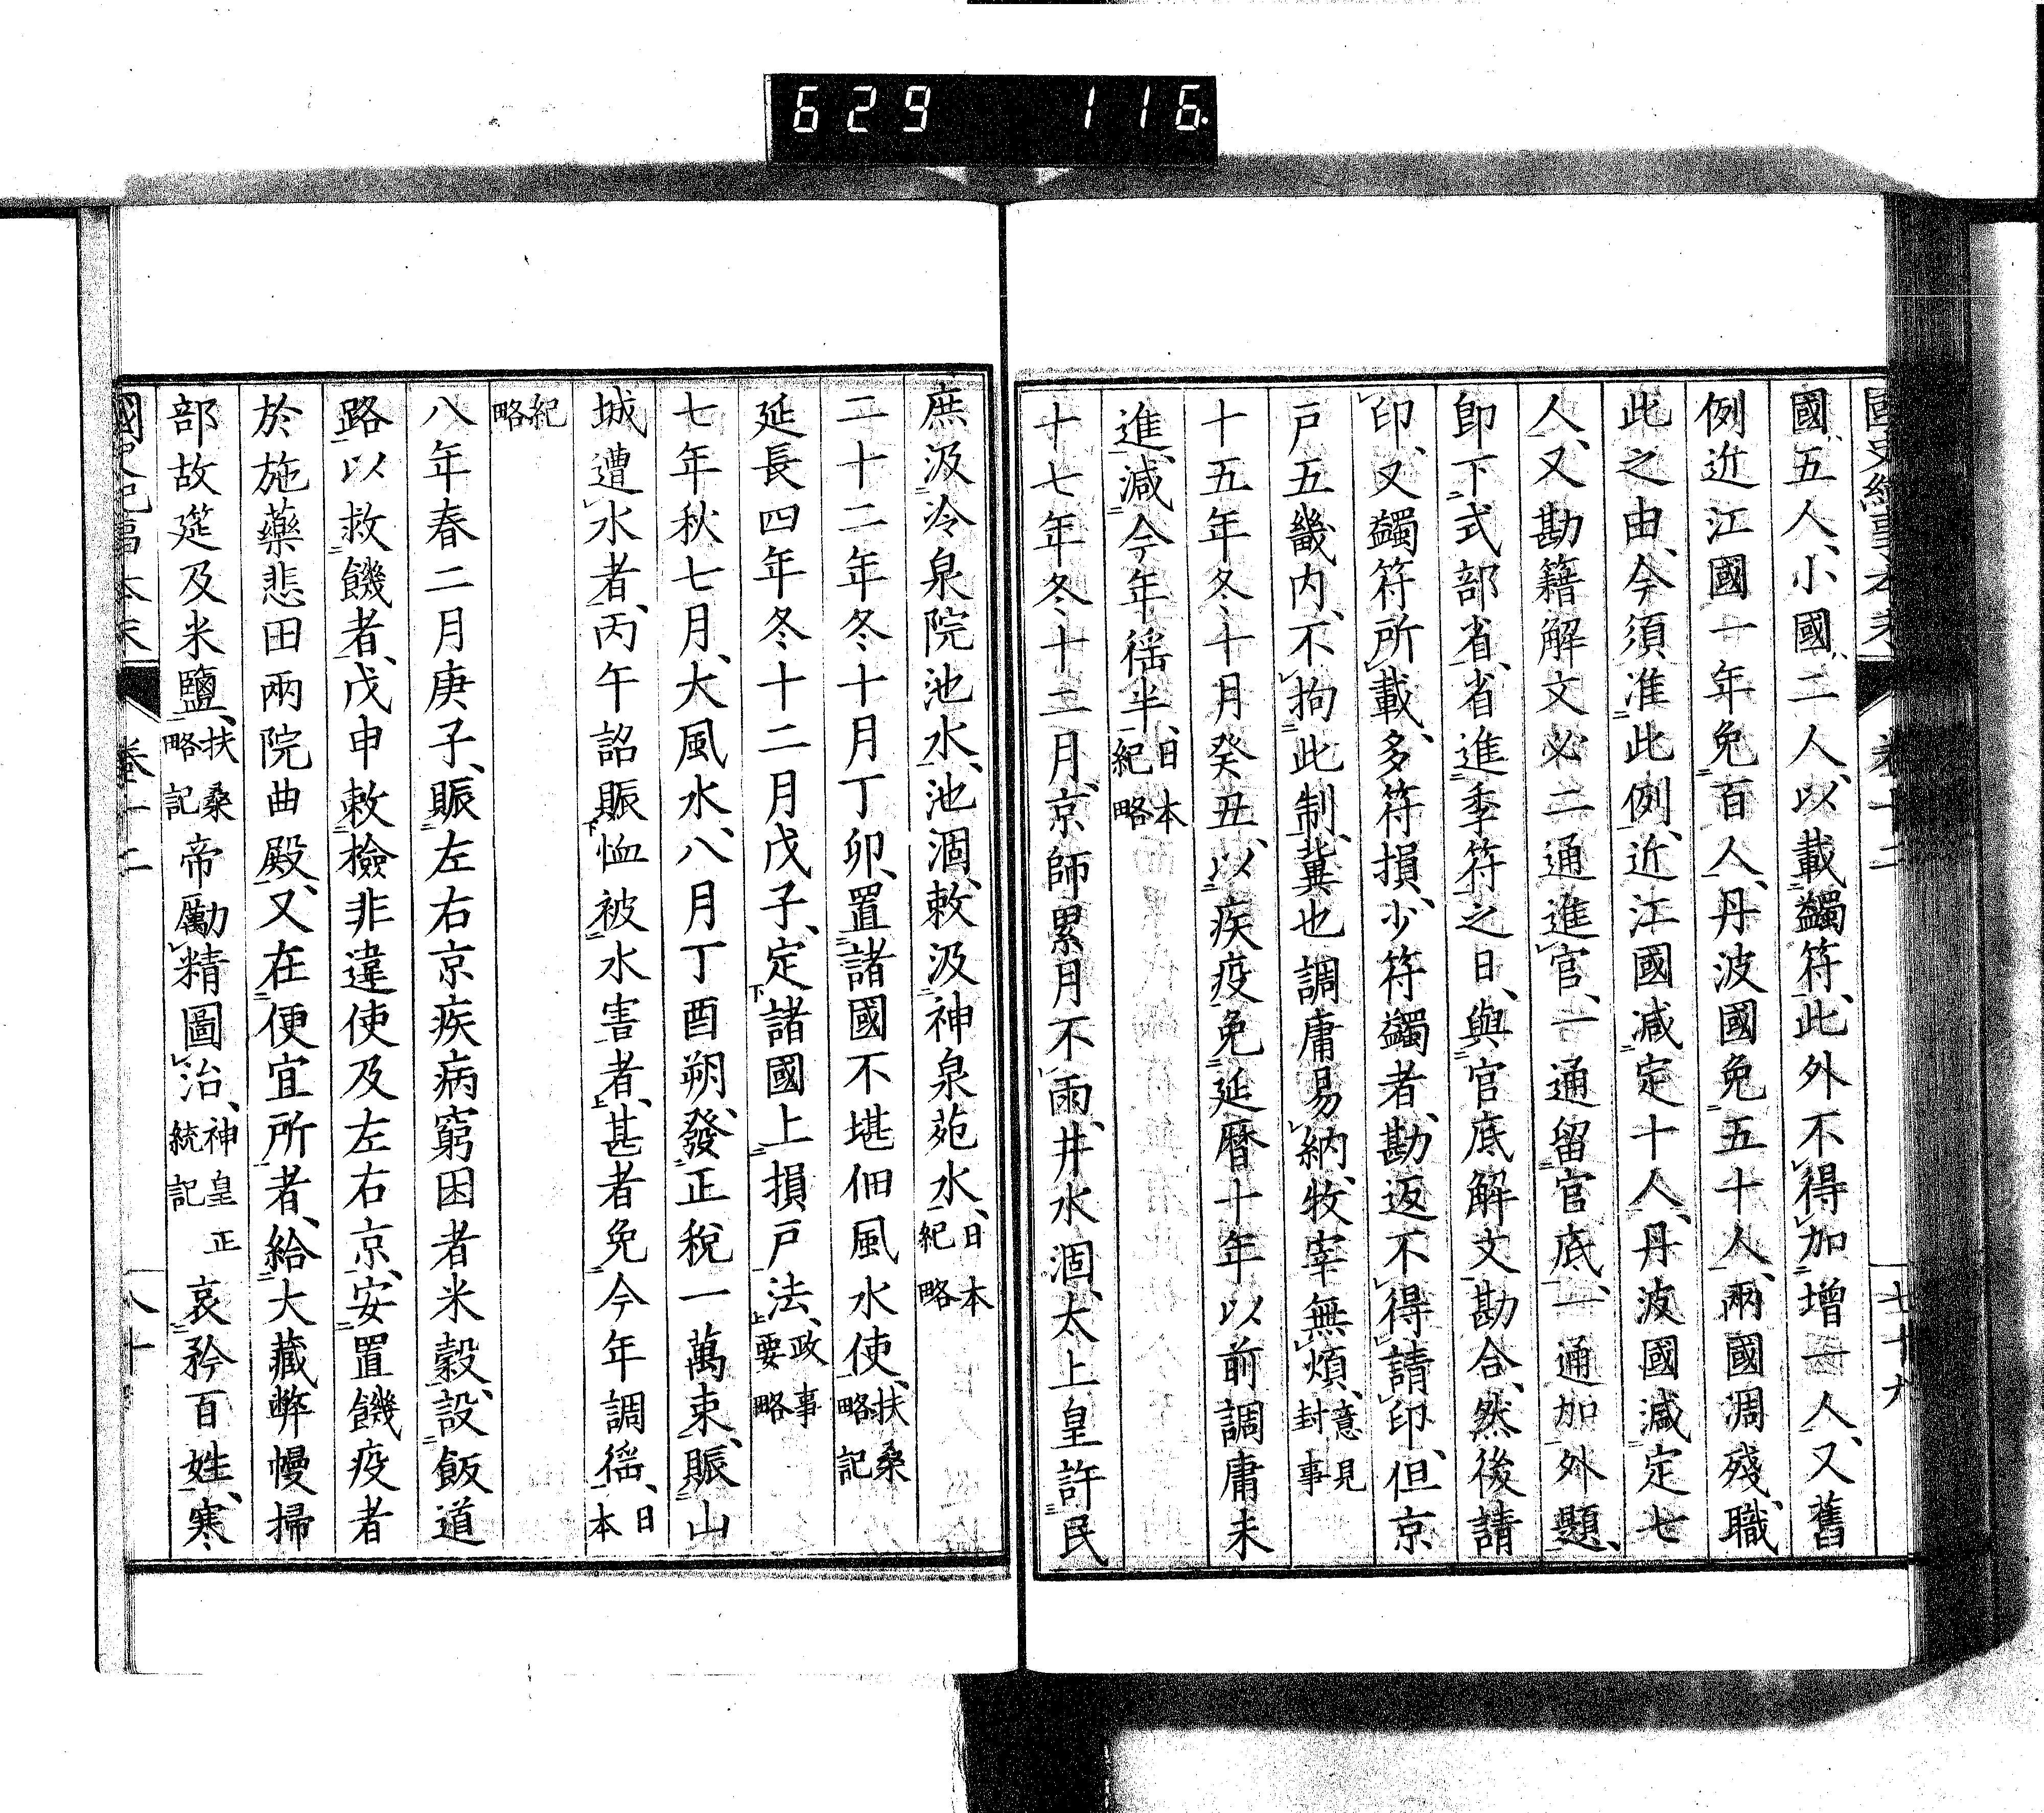 629 116
國史紀事本末 卷十二 七十九
國、五人、小國、二人、以載蠲符、此外不得加增一人、又舊
例近江國一年免百人、丹波國免五十人、兩國凋殘、職
此之由、今須准此例、近江國減定十人、丹波國減定七
人、又勘籍解文必二通進官、一通留官底、一通加外題、
卽下式部省、省進季符之日、與官底解文勘合、然後請
印、又蠲符所載、多符損、少符蠲者、勘返不得請印、但京
戶五畿內、不拘此制、冀也調庸易納、牧宰無煩、意見封事
十五年冬十月癸丑、以疾疫免延曆十年以前調庸未
進、減今年徭半、日本紀略
十七年冬十二月、京師累月不雨、井水涸、太上皇許民
庶汲冷泉院池水、池涸、敕汲神泉苑水、日本紀略
二十二年冬十月丁卯、置諸國不堪佃風水使、扶桑略記
延長四年冬十二月戊子、定諸國上損戶法、政事要略
七年秋七月、大風水、八月丁酉朔、發正稅一萬束、賑山
城遭水者、丙午詔賑恤被水害者、甚者免今年調徭、日本
紀略
八年春二月庚子、賑左右京疾病窮困者米穀、設飯道
路以救饑者、戊申敕檢非違使及左右京、安置饑疫者
於施藥悲田兩院曲殿、又在便宜所者、給大藏弊幔掃
部故筵及米鹽、扶桑略記 帝勵精圖治、神皇正統記 哀矜百姓、寒
國史紀事本末 卷十二 八十